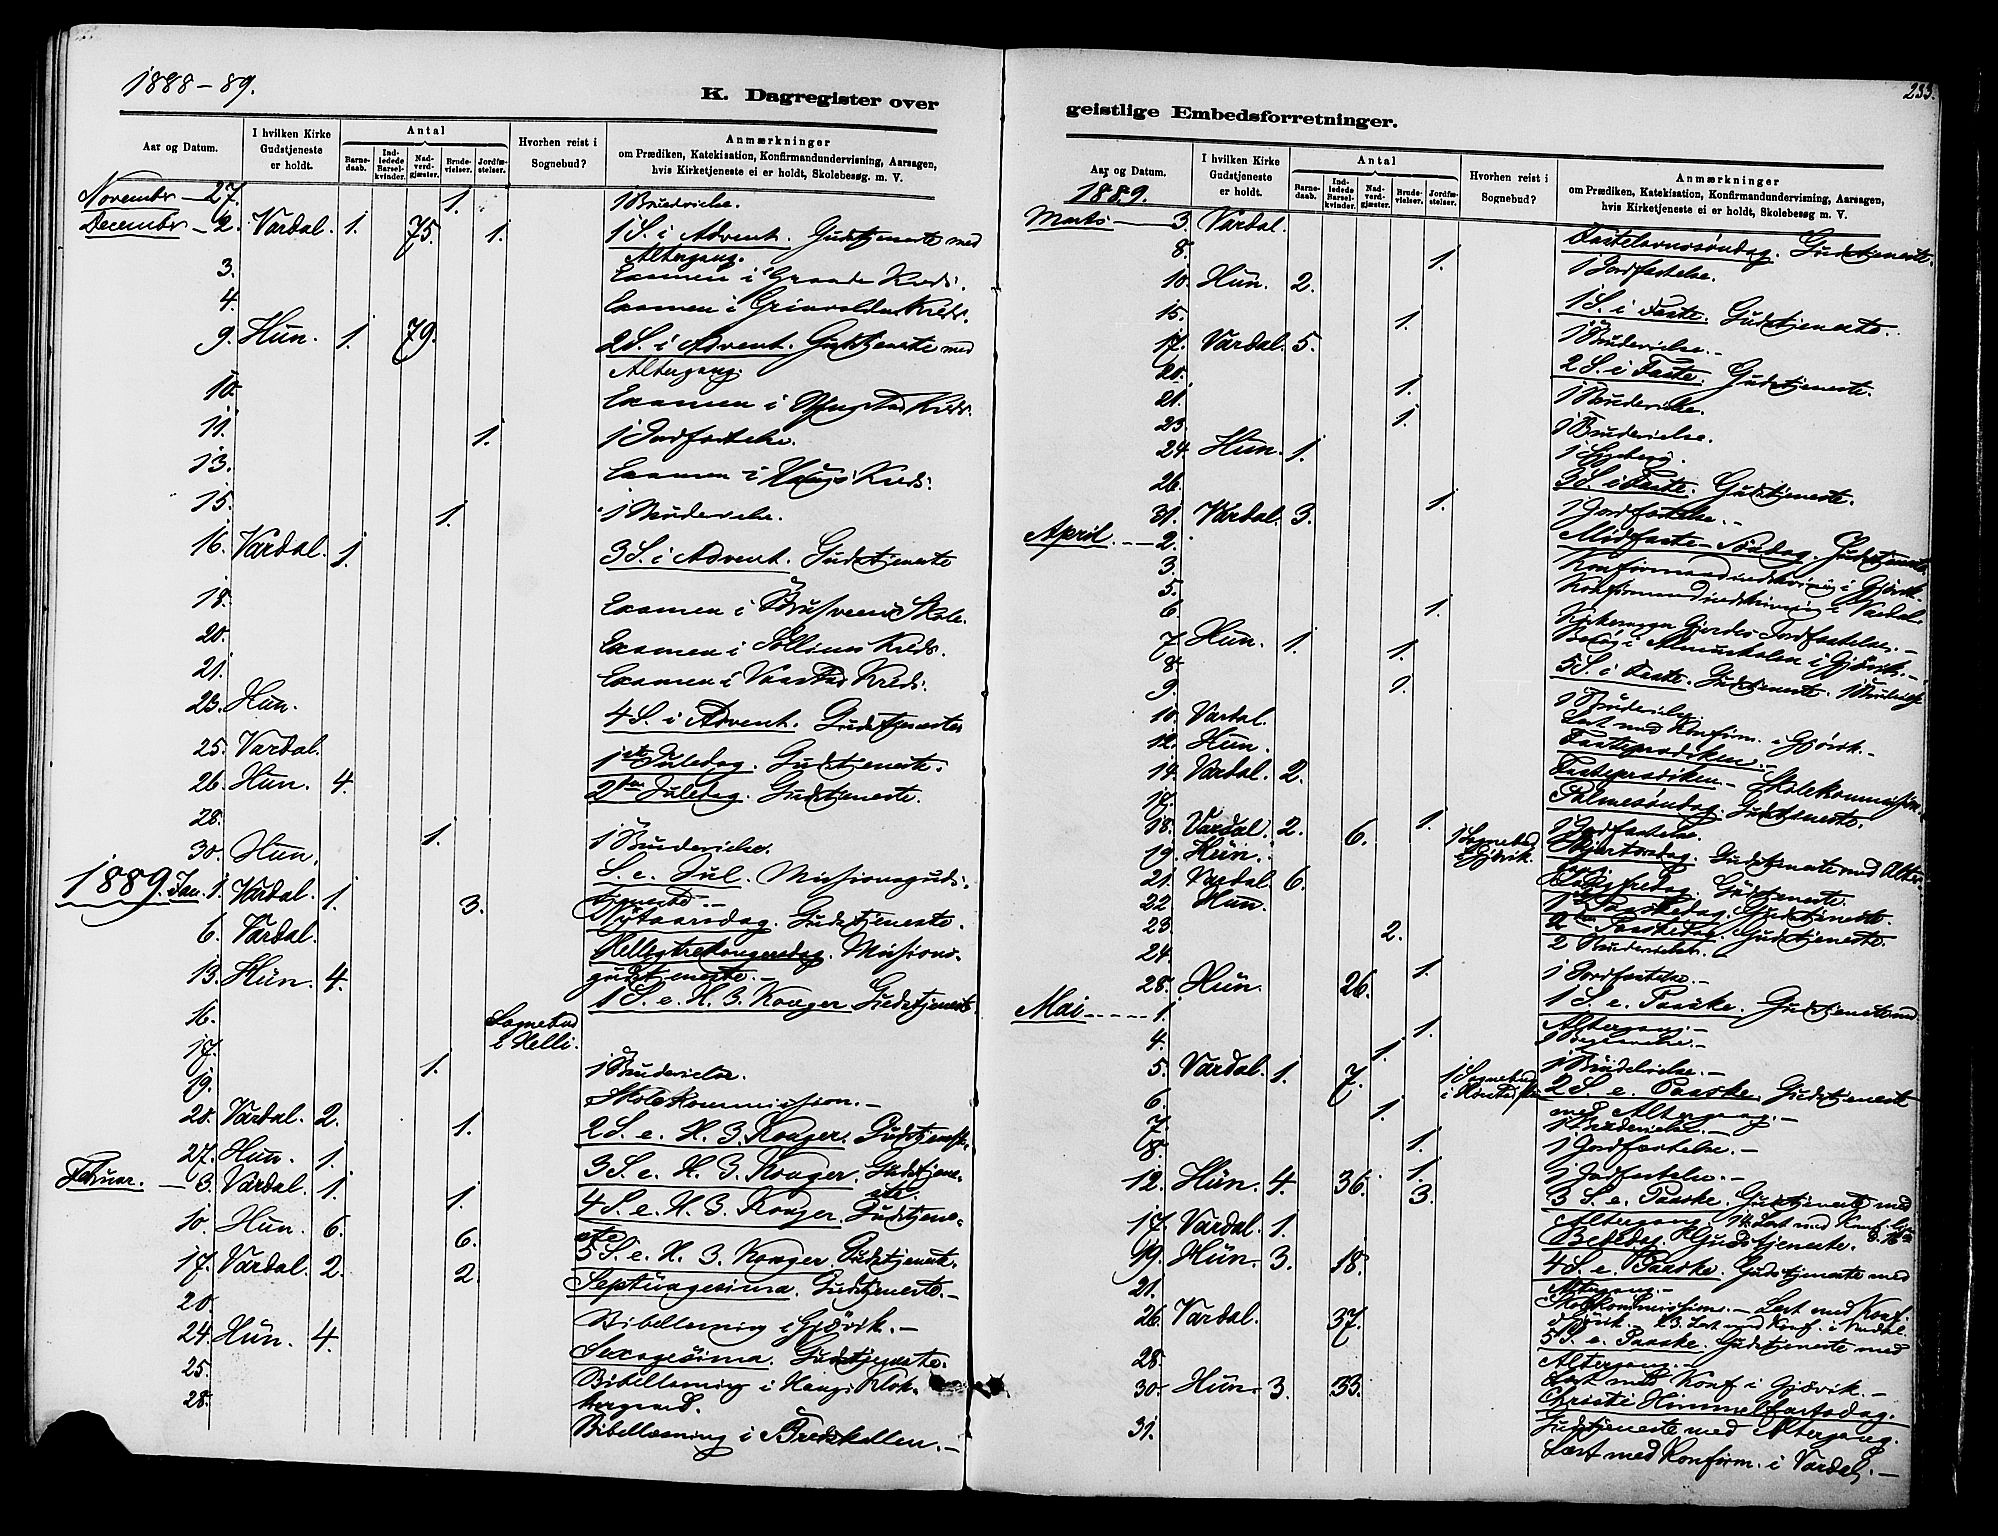 1888-89.
K. Dagregister over
Aar og Datum.
I hvilken Kirke Gudstjeneste er holdt.
Antal
Barnedaab.
Indledede Barselkvinder.
Nadverdgjæster.
Brudevielser.
Jordfæstelser.
Hvorhen reist i Sognebud?
Anmærkninger
om Prædiken, Katekisation, Konfirmandundervisning, Aarsagen,
hvis Kirketjeneste ei er holdt, Skolebesøg m. V.
November - 27. 1. 1 Brudevielse.
December - 2. Vardal. 1. 75. 1. 1 S. i Advent. Gudstjeneste med
Altergang.
3. Examen i Kreds.
4. Examen i Kreds.
9. Hun. 1. 79. 2 S. i Advent. Gudstjeneste med
Altergang.
10. Examen i Kreds.
11. 1. 1 Jordfæstelse.
13. Examen i Haugs Kreds.
15. 1. 1 Brudevielse.
16. Vardal. 1. 3 S. i Advent. Gudstjeneste
18. Examen i Skole.
20. Examen i Kreds.
21. Examen i Kreds.
23. Hun. 4 S. i Advent. Gudstjeneste
25. Vardal. 1ste Juledag. Gudstjeneste.
26. Hun. 4. 2den Juledag. Gudstjeneste.
28. 1. 1 Brudevielse.
30. Hun. S. e. Jul. Missionsguds-
tjeneste.-
1889. Jan. 1. Vardal. 1. 3. Nytaarsdag. Gudstjeneste.
6. Vardal. Helligtrekongersdag. Missions-
gudstjeneste.-
13. Hun. 4. 1 S. e. H. 3. Konger. Gudstjeneste.
16. Sognebud
i Helli.
17. 1. 1 Brudevielse.
19. Skolekommission.-
20. Vardal. 2. 1. 2 S. e. H. 3. Konger. Gudstjeneste.
27. Hun. 1. 3 S. e. H. 3. Konger. Gudstjene-
ste.
Februar. - 3. Vardal. 1. 1. 4 S. e. H. 3. Konger. Gudstjene-
ste
10. Hun. 6. 6. 5 S. e. H. 3. Konger. Gudstjeneste.
17. Vardal. 2. 2. Septuagesima. Gudstjeneste.-
20. Bibellæsning i Gjøvik.-
24. Hun. 4. Sexagesima. Gudstjeneste.
25. Bibellæsning i Haugs
28. Bibellæsning i -
233.
geistlige Embedsforretninger.
Aar og Datum.
I hvilken Kirke Gudstjeneste er holdt.
Antal
Barnedaab.
Indledede Barselkvinder.
Nadverdgjæster.
Brudevielser.
Jordfæstelser.
Hvorhen reist i Sognebud?
Anmærkninger
om Prædiken, Katekisation, Konfirmandundervisning, Aarsagen,
hvis Kirketjeneste ei er holdt, Skolebesøg m. V.
1889.
Marts - 3. Vardal. Fastelavnssøndag. Gudstjeneste.
8. 1. 1 Jordfæstelse.
10. Hun. 2. 1 S. i Faste. Gudstjeneste.
15. 1. 1 Brudevielse.-
17. Vardal. 5. 2 S. i Faste. Gudstjeneste.
20. 1. 1 Brudevielse.
21. 1. 1 Brudevielse.
23.
24. Hun. 1. 3 S. i Faste. Gudstjeneste.
26. 1. 1 Jordfæstelse.-
31. Vardal. 3. Midfaste-Søndag. Gudstjeneste
April. - 2. Konfirmandindskrivning i Gjøvik.
3. Konfirmandindskrivning i Vardal.
5. 1. Jordfæstelse.-
6. Besøg i Almueskolen i Gjøvik.-
7. Hun. 1. 1. 5 S. i Faste. Gudstjeneste. 1 Brudevielse
8. 1. 1 Brudevielse.
9. Læst med Konfirm. i Gjøvik.-
10. Vardal. Fasteprædiken.-
12. Hun. Fasteprædiken.- Skolekommission.
14. Vardal. 2. Palmesøndag. Gudstjeneste.
17. 1. 1 Jordfæstelse
18. Vardal. 2. 6. 1 Sognebud
Gjøvik. Skjærtorsdag. Gudstjeneste med Alter-
19. Hun. Langfredag. Gudstjeneste.
21. Vardal. 6. 1ste Paaskedag. Gudstjeneste.
22. Hun. 2den Paaskedag. Gudstjeneste.
23. 2. 2 Brudevielser.
24. 1. 1 Jordfæstelse.-
28. Hun. 26. 1 S. e. Paaske. Gudstjeneste med
Altergang.-
Mai - 1. 1. 1 Jordfæstelse.-
4. 1. 1 Brudevielse.-
5. Vardal. 1. 7. 1 Sognebud
i 2 S. e. Paaske. Gudstjeneste
med Altergang.-
6. 1. 1 Brudevielse.-
7. 1. 1 Jordfæstelse.-
8. 1. 1 Jordfæstelse.-
12. Hun. 4. 36. 3. 3 S. e. Paaske. Gudstjeneste med
Altergang. 14. Læst med Konf.
17. Vardal. 1. Bededag. Gudstjeneste.
19. Hun. 3. 18. 4 S. e. Paaske. Gudstjeneste med
Altergang.-
21. Skolekommission.- Læst med Konf.
i Gjøvik.- 23. Læst med Konf. i Vardal.
26. Vardal. 37. 5 S. e. Paaske. Gudstjeneste med
Altergang.-
28. Læst med Konf i Gjøvik.-
30. Hun. 3. 33. Christi Himmelfartsdag.
Gudstjeneste med Altergang.
31. Læst med Konfirm. i Vardal.-